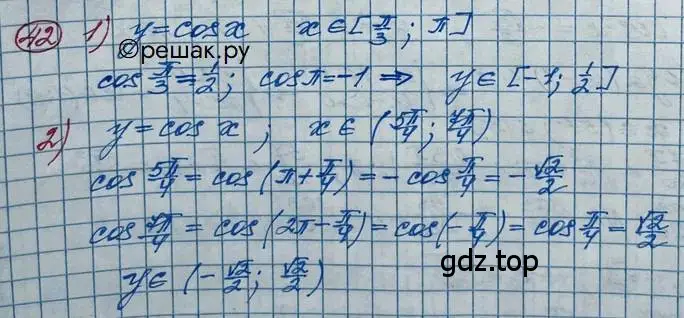 42 1) y = cos x x ∈ [π/3 ; π]
© решак.ру
cos π/3 = 1/2 ; cos π = -1 ⇒ y ∈ [-1; 1/2]
2) y = cos x ; x ∈ (5π/4 ; 7π/4)
cos 5π/4 = cos (π + π/4) = - cos π/4 = - √2/2
cos 7π/4 = cos (2π - π/4) = cos (- π/4) = cos π/4 = √2/2
gdz.top
y ∈ (- √2/2 ; √2/2)